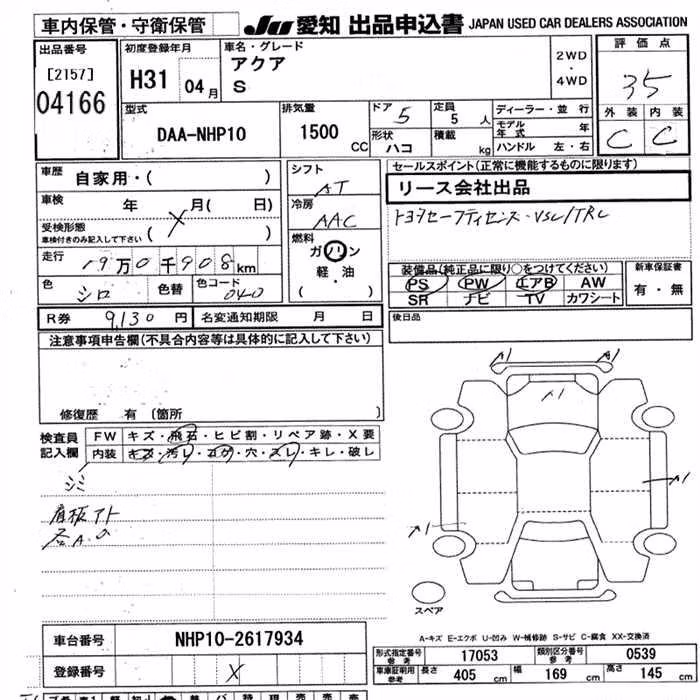 車内保管・守衛保管
JU 愛知 出品申込書 JAPAN USED CAR DEALERS ASSOCIATION
出品番号
[2157]
04166
初度登録年月
H31 04月
車名・グレード
アクア
S
2WD
・
4WD
評価点
3.5
外装 内装
C C
型式
DAA-NHP10
排気量
1500
CC
ドア 5
形状
ハコ
定員
5 人
積載
kg
ディーラー・並行
モデル年式 年
ハンドル 左・右
車歴
自家用・( )
車検
年 月( 日)
受検形態
車検付きのみ記入して下さい ( )
走行
19万0千908km
色
シロ
色替
色コード
040
シフト
AT
冷房
AAC
燃料
ガソリン
軽・油
( )
セールスポイント(正常に機能するものに限ります)
リース会社出品
トヨタセーフティセンス・VSC/TRC
装備品(純正品に限り○をつけてください)
PS PW エアB AW
SR ナビ TV カワシート
新車保証書
有・無
R券 9,130 円
名変通知期限 月 日
後日品
注意事項申告欄(不具合内容等は具体的に記入して下さい)
修復歴 有 〔箇所 〕
検査員
記入欄
FW キズ・飛石・ヒビ割・リペア跡・X要
内装 キズ・汚レ・コゲ・穴・スレ・キレ・破レ
A1 A1
A1
A1
A1
スペア
A-キズ E-エクボ U-凹み W-補修跡 S-サビ C-腐食 XX-交換済
車台番号 NHP10-2617934
登録番号 X
形式指定番号
参考
17053
類別区分番号
参考
0539
車庫証明用
参考
長さ 405 cm 幅 169 cm 高さ 145 cm